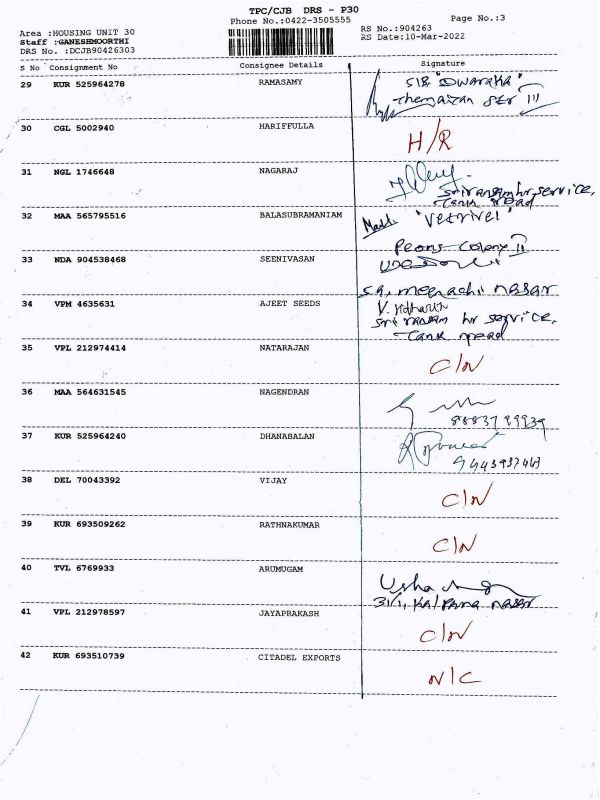 TPC/CJB DRS - P30
Phone No.:0422-3505555
Page No.:3
Area :HOUSING UNIT 30
Staff :GANESHMOORTHI
DRS No. :DCJB90426303
RS No.:904263
RS Date:10-Mar-2022
S No Consignment No Consignee Details Signature
29 KUR 525964278 RAMASAMY
"Dwaraka"
III
30 CGL 5002940 HARIFFULLA H/R
31 NGL 1746648 NAGARAJ
hr service,
Tank road
32 MAA 565795516 BALASUBRAMANIAM "Vetrivel"
Peons Colony II
33 NDA 904538468 SEENIVASAN
meenachi nagar
34 VPM 4635631 AJEET SEEDS
hr service,
Tank road
35 VPL 212974414 NATARAJAN C/N
36 MAA 564631545 NAGENDRAN
37 KUR 525964240 DHANABALAN
38 DEL 70043392 VIJAY C/N
39 KUR 693509262 RATHNAKUMAR C/N
40 TVL 6769933 ARUMUGAM Usha
31/1, Kalpana nagar
41 VPL 212978597 JAYAPRAKASH C/N
42 KUR 693510739 CITADEL EXPORTS N/C